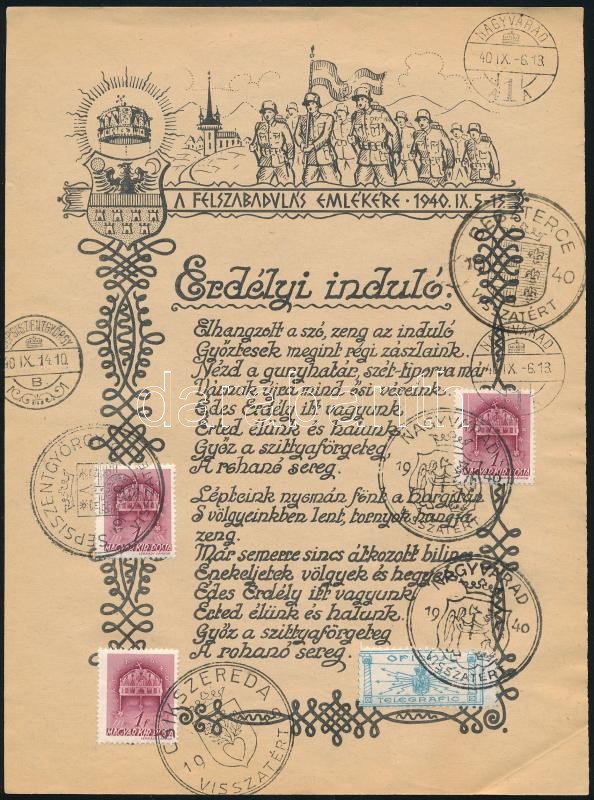 NAGYVÁRAD
40 IX.-6.18
1
A FELSZABADULÁS EMLÉKÉRE · 1940. IX. 5-13.
BESZTERCE
19 40
VISSZATÉRT
Erdélyi induló.
Elhangzott a szó, zeng az induló
Győztesek megint régi zászlaink.
Nézd a gutyhatár, szét-tiporva már
Várnak újra mind ősi véreink.
Édes Erdély itt vagyunk
Érted élünk és halunk.
Győz a szittyaförgeteg,
A rohanó sereg.
SEPSISZENTGYÖRGY
40 IX.14.10
B
NAGYVÁRAD
IX.-6.18
NAGYVÁRAD
19 40
VISSZATÉRT
SEPSISZENTGYÖRGY
MAGYAR KIR. POSTA
Lépteink nyomán fönt a Hargitán
S völgyeinkben lent, tornyok hangja
zeng.
Már semerre sincs átkozott bilincs
Énekeljetek völgyek és hegyek.
Édes Erdély itt vagyunk
Érted élünk és halunk.
Győz a szittyaförgeteg
A rohanó sereg.
NAGYVÁRAD
19 40
VISSZATÉRT
TELEGRAFIC
1 f
MAGYAR KIR. POSTA
CSIKSZEREDA
19
VISSZATÉRT
darabanth